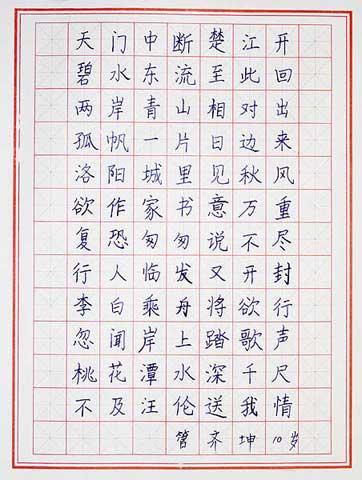 天门中断楚江开
碧水东流至此回
两岸青山相对出
孤帆一片日边来
洛阳城里见秋风
欲作家书意万重
复恐匆匆说不尽
行人临发又开封
李白乘舟将欲行
忽闻岸上踏歌声
桃花潭水深千尺
不及汪伦送我情
管齐坤10岁